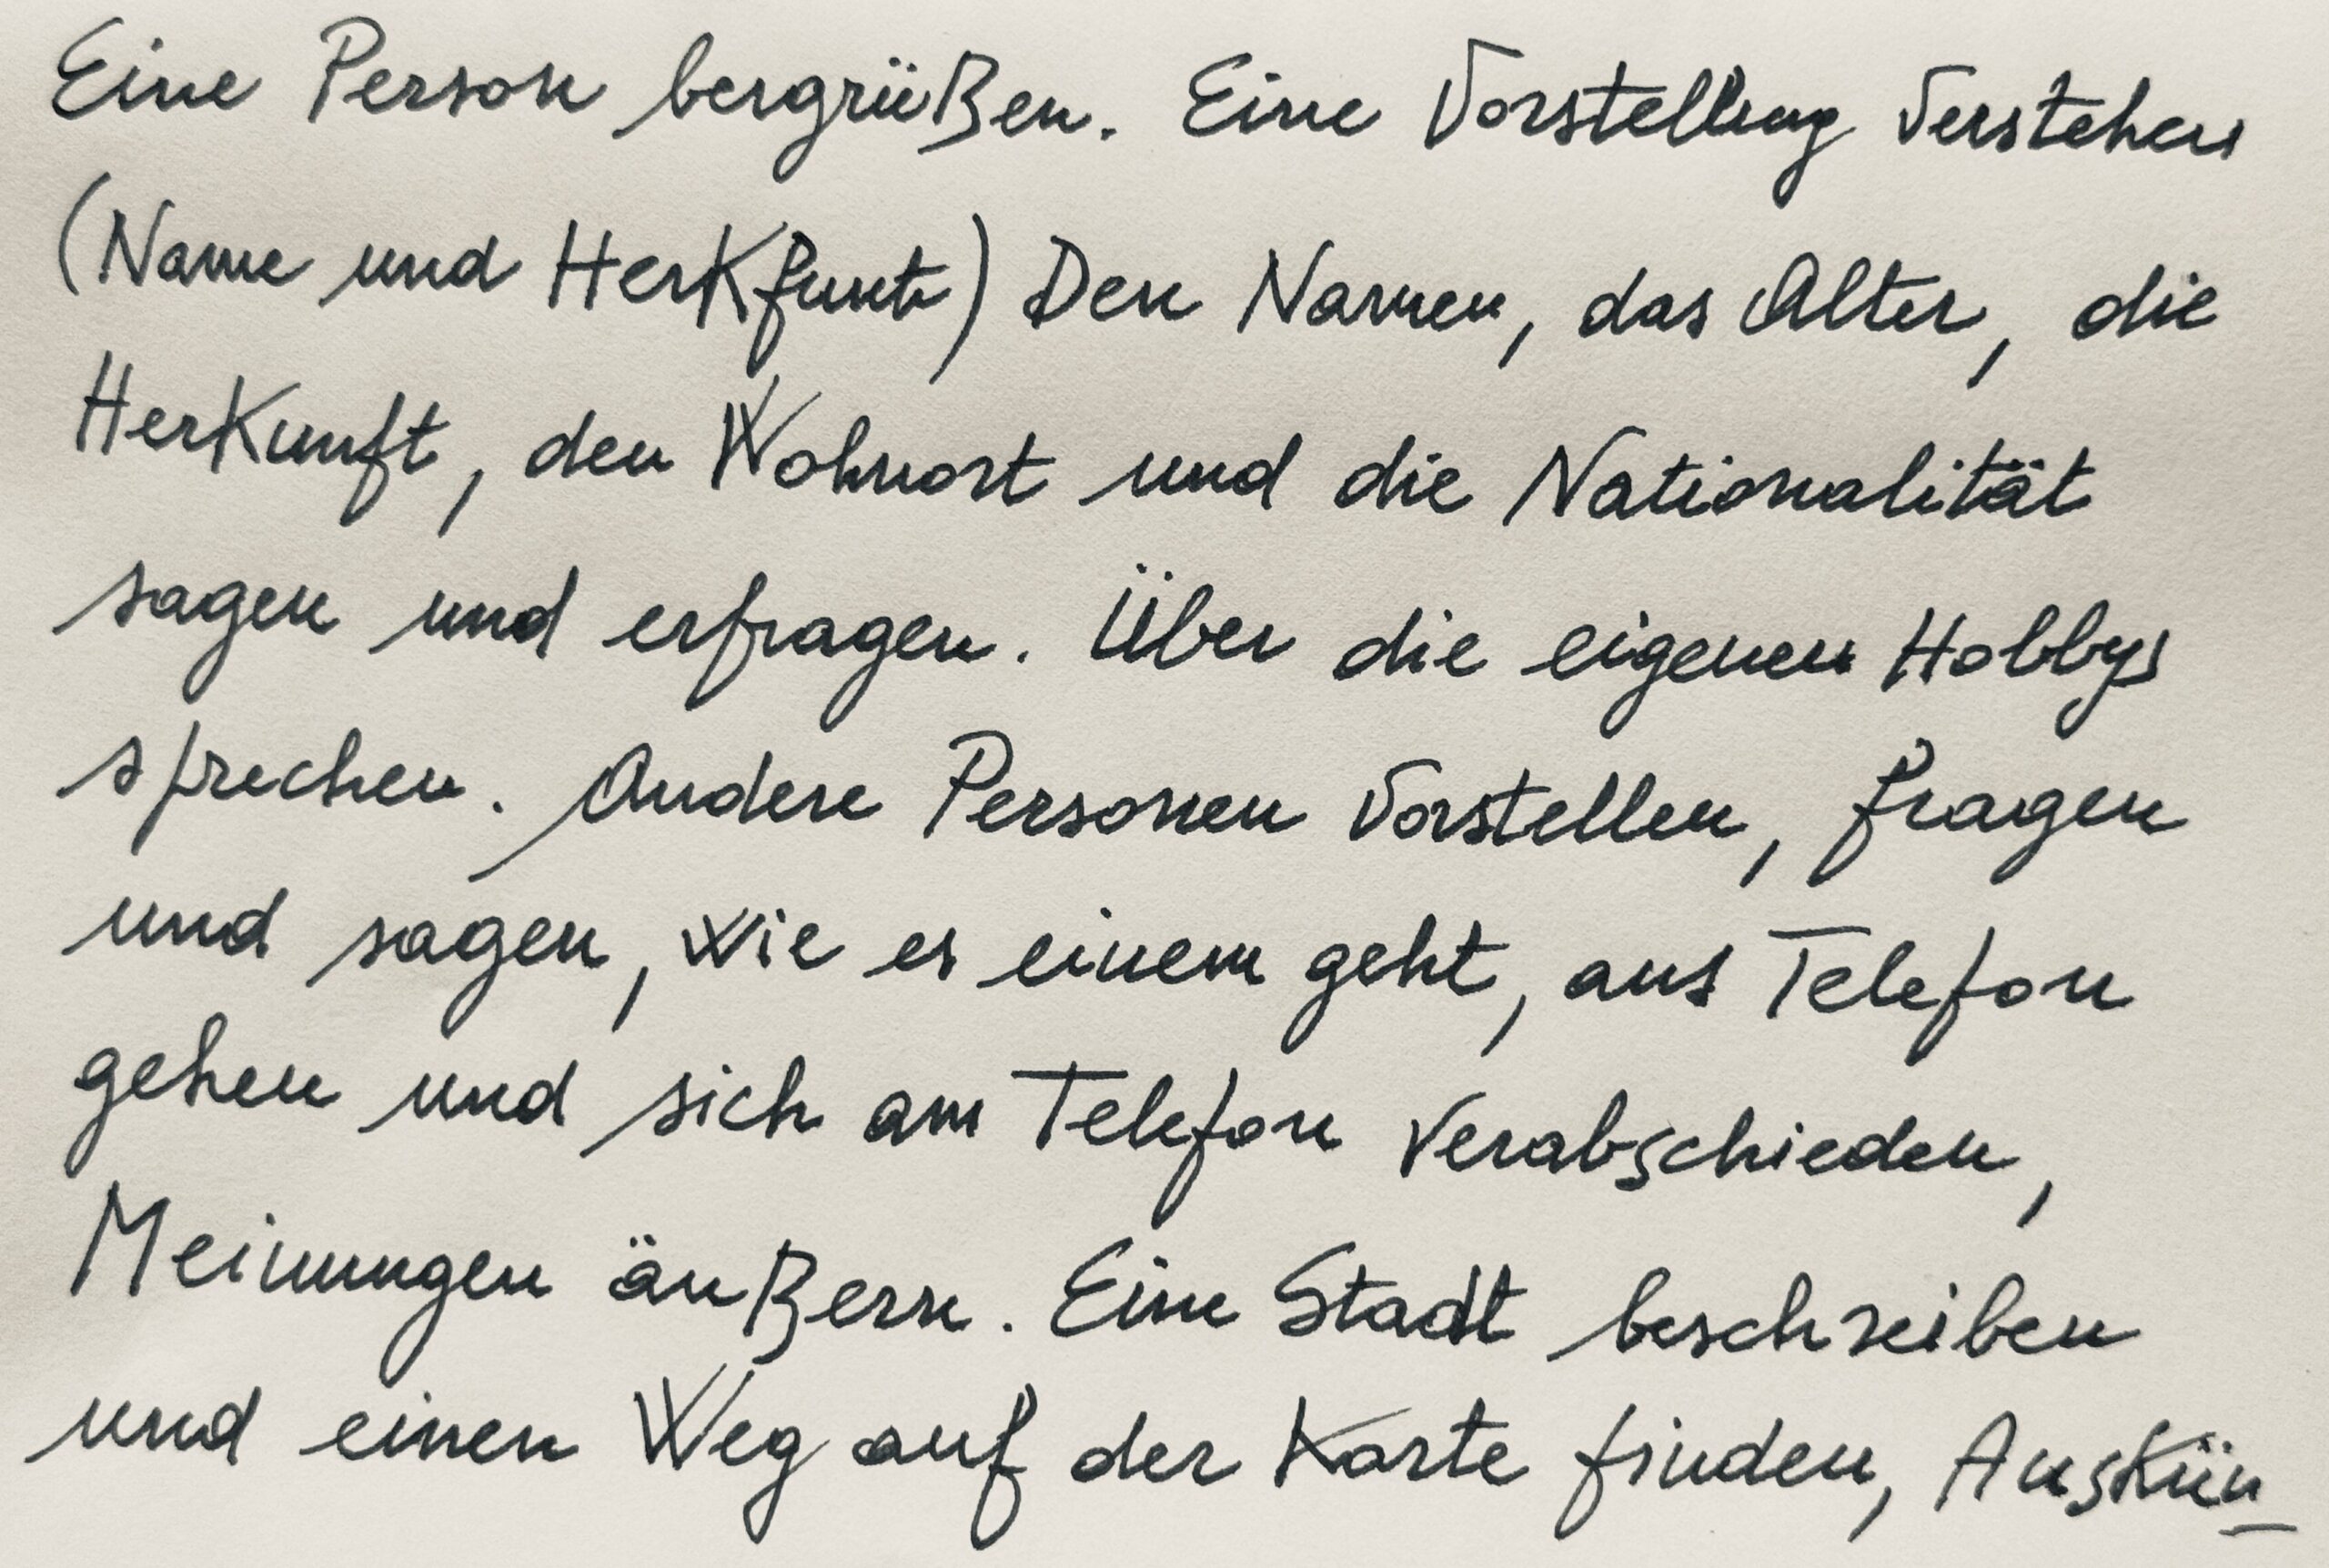 Eine Person bergrüßen. Eine Vorstellung verstehen
(Name und Herkfunt) Den Namen, das Alter, die
Herkunft, den Wohnort und die Nationalität
sagen und erfragen. Über die eigenen Hobbys
sprechen. Andere Personen vorstellen, fragen
und sagen, wie es einem geht, ans Telefon
gehen und sich am Telefon verabschieden,
Meinungen äußern. Eine Stadt beschreiben
und einen Weg auf der Karte finden, Auskün_